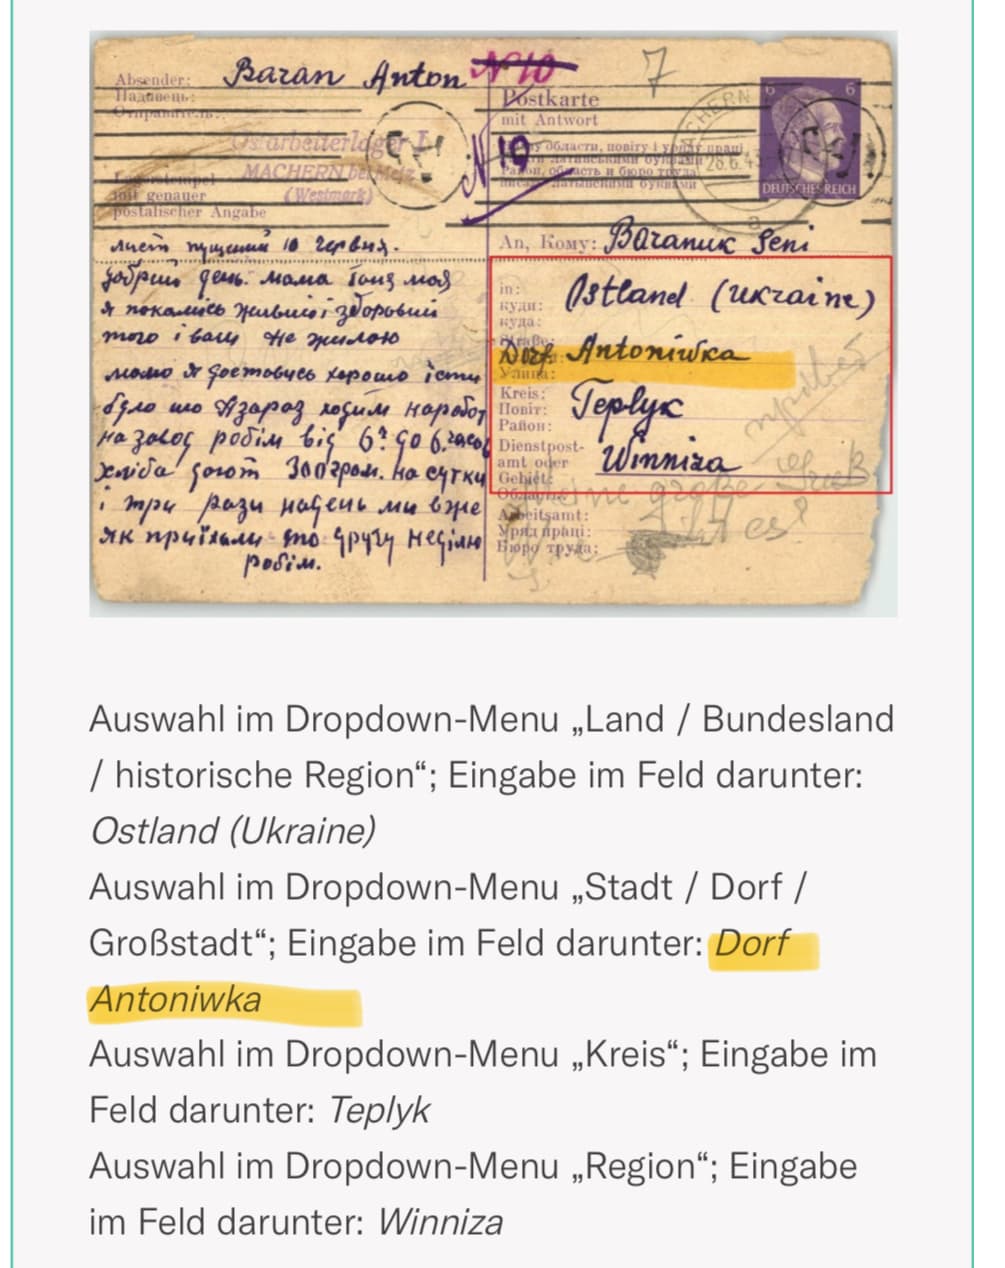 Absender: Baran Anton N 10
Надавець:
Отправитель:
7
Postkarte
mit Antwort
6 6
DEUTSCHES REICH
Ostarbeiterlager
MACHERN bei Metz
(Westmark)
N 19
Lagerstempel
mit genauer
postalischer Angabe
An, Кому: Baranuk Seni
лист пущений 10 червня.
добрий день. мама
in: Ostland (Ukraine)
куди:
куда:
я здоровий
того і вам желаю
Straße:
Dorf Antoniwka
Улица:
мамо я хорошо
Kreis: Teplyk
Повіт:
Район:
було шо
на завод робім від 6 до 6
Dienstpost-
amt oder Winniza
Gebiet:
хліба дают 300 грам. на сутки
і три рази надень ми вже
Arbeitsamt:
Уряд праці:
Бюро труда:
як приїхали то другу неділю
робім.
Auswahl im Dropdown-Menu „Land / Bundesland
/ historische Region“; Eingabe im Feld darunter:
Ostland (Ukraine)
Auswahl im Dropdown-Menu „Stadt / Dorf /
Großstadt“; Eingabe im Feld darunter: Dorf
Antoniwka
Auswahl im Dropdown-Menu „Kreis“; Eingabe im
Feld darunter: Teplyk
Auswahl im Dropdown-Menu „Region“; Eingabe
im Feld darunter: Winniza